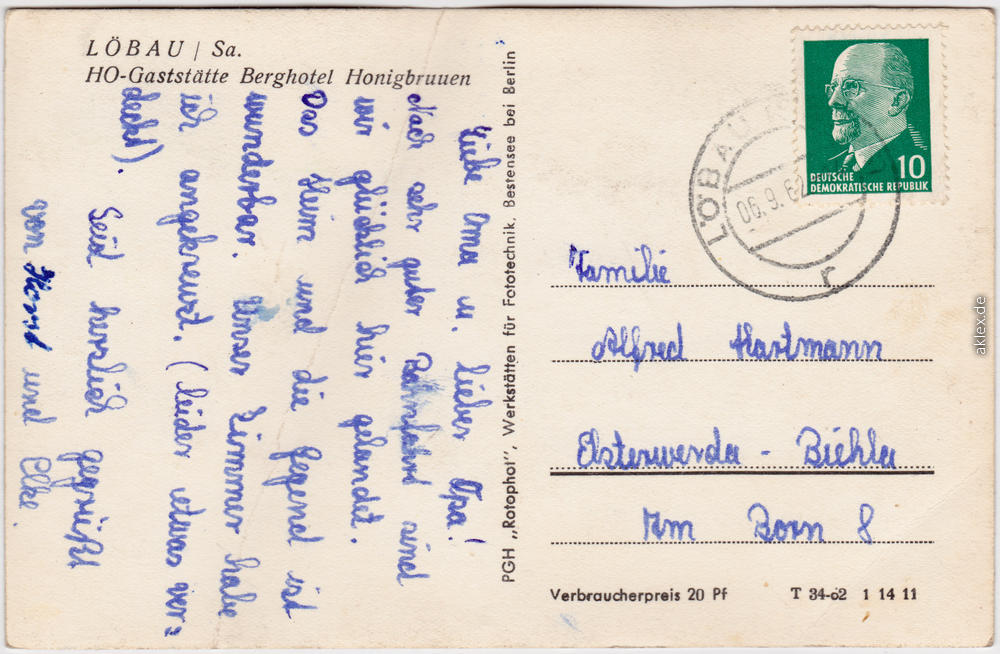 LÖBAU / Sa.
HO-Gaststätte Berghotel Honigbruuen
Liebe Oma u. lieber Opa!
Nach sehr guter Bahnfahrt sind
wir glücklich hier gelandet.
Das Heim und die Gegend ist
wunderbar. Unser Zimmer habe
ich angekreuzt. (leider etwas ver=
deckt).
Seid herzlich gegrüßt
von Horst und Elke.
PGH „Rotophot", Werkstätten für Fototechnik, Bestensee bei Berlin
DEUTSCHE
DEMOKRATISCHE REPUBLIK
10
LÖBAU
06.9.62
r
Familie
Alfred Hartmann
Elsterwerda - Biehla
Am Born 8
Verbraucherpreis 20 Pf
T 34-62 1 14 11
aklex.de